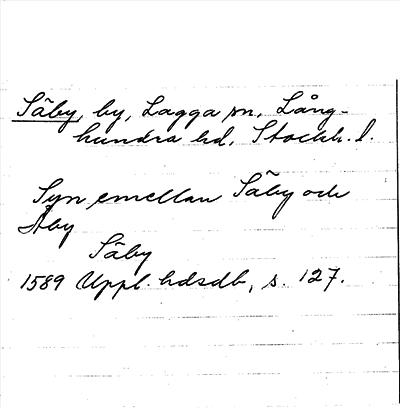 Säby, by, Lagga sn, Lång-
hundra hd, Stockh. l.
Syn emellan Säby och
Åby
Säby
1589 Uppl. hdsdb, s. 127.